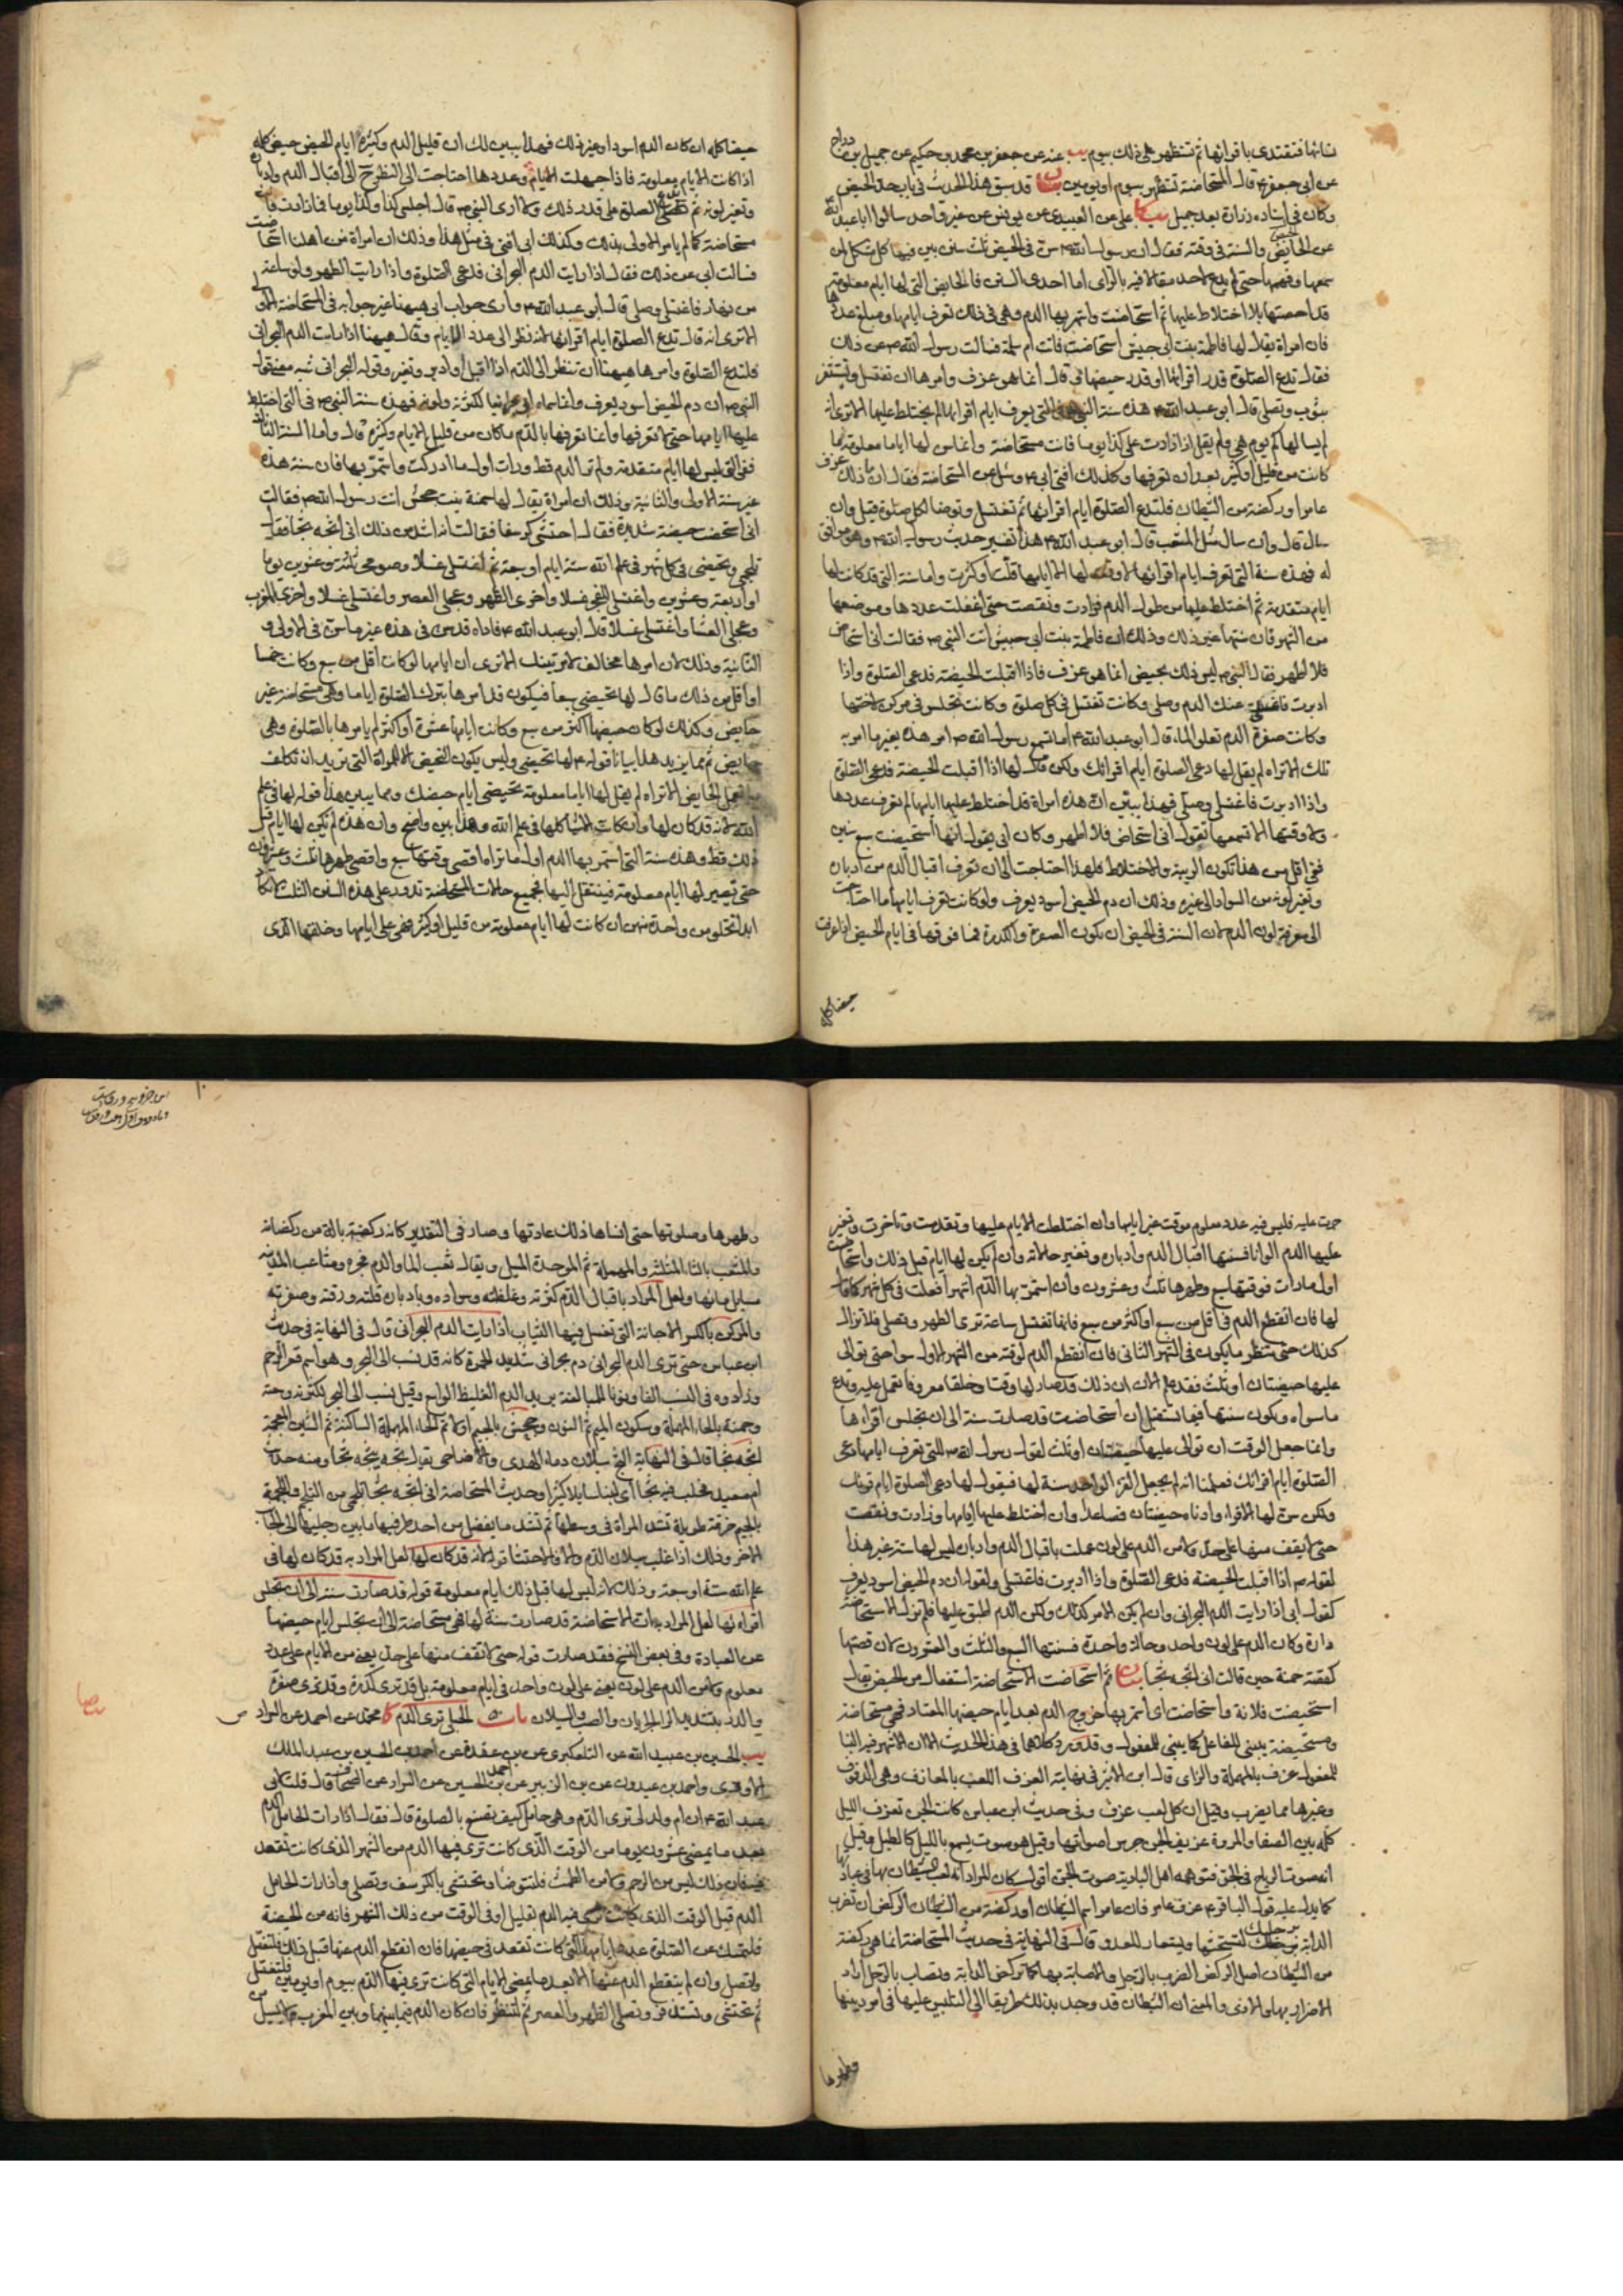 نسائها فتقتدي باقرائها ثم تستظهر على ذلك بيوم يب عنه عن جعفر بن محمد بن حكيم عن جميل بن دراج
عن ابي جعفر ع قال المستحاضة تستظهر بيوم او يومين بيان قد سبق هذا الحديث في باب حد الحيض
وكان في اسناده زرارة بعد جميل يب كا علي عن العبيدي عن يونس عن غير واحد سالوا ابا عبد الله
عن الحائض والسنة في وقته فقال ان رسول الله ص سن في الحيض ثلث سنن بين فيها كل مشكل لمن
سمعها وفهمها حتى لم يدع لاحد مقالا فيه بالراي اما احدى السنن فالحايض التي لها ايام معلومة
قد احصتها بلا اختلاط عليها ثم استحاضت واستمر بها الدم وهي في ذلك تعرف ايامها ومبلغ عددها
فان امراة يقال لها فاطمة بنت ابي حبيش استحاضت فاتت ام سلمة فسالت رسول الله ص عن ذلك
فقال تدع الصلوة قدر اقرائها او قدر حيضها وقال انما هو عزف وامرها ان تغتسل وتستثفر
بثوب وتصلي قال ابو عبد الله ع هذه سنة النبي ص في التي يعرف ايام اقرائها لم يختلط عليها الا ترى انه
لم يسالها كم يوم هي ولم يقل اذا زادت على كذا يوما فانت مستحاضة وانما سن لها اياما معلومة ما
كانت من قليل او كثير بعد ان تعرفها وكذلك افتى ابي ع وسئل عن المستحاضة فقال ان ما ذلك عزف
عامر او ركضة من الشيطان فلتدع الصلوة ايام اقرائها ثم تغتسل وتوضا لكل صلوة قيل وان
سال قال وان سال مثل المثعب قال ابو عبد الله ع هذا تفسير حديث رسول الله ص وهو موافق
له فهذه سنة التي تعرف ايام اقرائها لا وقت لها الا ايامها قلت او كثرت واما سنة التي قد كانت لها
ايام متقدمة ثم اختلط عليها من طول الدم فزادت ونقصت حتى اغفلت عددها وموضعها
من الشهر فان سنتها غير ذلك وذلك ان فاطمة بنت ابي حبيش اتت النبي ص فقالت اني استحاض
فلا اطهر فقال النبي ص ليس ذلك بحيض انما هو عزف فاذا اقبلت الحيضة فدعي الصلوة واذا
ادبرت فاغسلي عنك الدم وصلي وكانت تغتسل في كل صلوة وكانت تجلس في مركن لاختها
وكانت صفرة الدم تعلو الماء قال ابو عبد الله ع اما تسمع رسول الله ص امر هذه بغير ما امر به
تلك الا تراه لم يقل لها دعي الصلوة ايام اقرائك ولكن قال لها اذا اقبلت الحيضة فدعي الصلوة
واذا ادبرت فاغتسلي وصلي فهذا يبين ان هذه امراة قد اختلط عليها ايامها لم تعرف عددها
ولا وقتها الا تسمعها تقول اني استحاض فلا اطهر وكان ابي يقول انها استحيضت سبع سنين
ففي اقل من هذا تكون الريبة والاختلاط فلهذا احتاجت الى ان تعرف اقبال الدم من ادباره
وتغير لونه من السواد الى غيره وذلك ان دم الحيض اسود يعرف ولو كانت تعرف ايامها ما احتاجت
الى معرفة لون الدم لان السنة في الحيض ان تكون الصفرة والكدرة فما فوقها في ايام الحيض اذا عرفت
حيضا كله
حيضا كله ان كان الدم اسود او غير ذلك فهذا يبين لك ان قليل الدم وكثيره ايام الحيض حيض كله
اذا كانت الايام معلومة فاذا جهلت الايام وعددها احتاجت الى النظر ح الى اقبال الدم وادباره
وتغير لونه ثم تدع الصلوة على قدر ذلك ولا ارى النبي ص قال اجلسي كذا وكذا يوما فما زادت فانت
مستحاضة كما لم يامر الاولى بذلك وكذلك ابي افتى في مثل هذا وذلك ان امراة من اهلنا استحاضت
فسالت ابي عن ذلك فقال اذا رايت الدم البحراني فدعي الصلوة واذا رايت الطهر ولو ساعة
من نهار فاغتسلي وصلي قال ابو عبد الله ع وارى جواب ابي هيهنا غير جوابه في المستحاضة الاولى
الا ترى انه قال تدع الصلوة ايام اقرائها لانه نظر الى عدد الايام وقال هيهنا اذا رايت الدم البحراني
فلتدع الصلوة وامرها هيهنا ان تنظر الى الدم اذا اقبل او ادبر وتغير وقوله البحراني شبه معنى قول
النبي ص ان دم الحيض اسود يعرف وانما سماه ابي بحرانيا لكثرته ولونه فهذه سنة النبي ص في التي اختلط
عليها ايامها حتى لا تعرفها وانما تعرفها بالدم ما كان من قليل الايام وكثيره قال واما السنة الثالثة
ففي التي ليس لها ايام متقدمة ولم تر الدم قط ورات اول ما ادركت واستمر بها فان سنة هذه
غير سنة الاولى والثانية وذلك ان امراة يقال لها حمنة بنت جحش اتت رسول الله ص فقالت
اني استحضت حيضة شديدة فقال احتشي كرسفا فقالت انه اشد من ذلك اني اثجه ثجا فقال
تلجمي وتحيضي في كل شهر في علم الله ستة ايام او سبعة ثم اغتسلي غسلا وصومي ثلثة وعشرين يوما
او اربعة وعشرين واغتسلي للفجر غسلا واخري الظهر وعجلي العصر واغتسلي غسلا واخري المغرب
وعجلي العشاء واغتسلي غسلا قال ابو عبد الله ع فاراه قد سن في هذه غير ما سن في الاولى و
الثانية وذلك لان امرها مخالف لامر تينك الا ترى ان ايامها لو كانت اقل من سبع وكانت خمسا
او اقل من ذلك ما قال لها تحيضي سبعا فيكون قد امرها بترك الصلوة اياما وهي مستحاضة غير
حايض وكذلك لو كان حيضها اكثر من سبع وكانت ايامها عشرة او اكثر لم يامرها بالصلوة وهي
حايض ثم مما يزيد هذا بيانا قوله ع لها تحيضي وليس يكون التحيض الا للمراة التي تريد ان تكلف
ما تعمل الحايض الا تراه لم يقل لها اياما معلومة تحيضي ايام حيضك ومما يبين هذا قوله لها في علم
الله لانه قد كان لها وان كانت الاشياء كلها في علم الله وهذا بين واضح وان هذه لم تكن لها ايام قبل
ذلك قط وهذه سنة التي استمر بها الدم اول ما تراه اقصى وقتها سبع واقصى طهرها ثلث وعشرون
حتى تصير لها ايام معلومة فينتقل اليها فجميع حالات المستحاضة تدور على هذه السنن الثلث لا تكاد
ابدا تخلو من واحدة منهن ان كانت لها ايام معلومة من قليل او كثير فهي على ايامها وخلقتها الذي
جرت عليه فليس فيه عدد معلوم موقت غير ايامها وان اختلطت الايام عليها وتقدمت وتاخرت وتغير
عليها الدم الوانا فسنتها اقبال الدم وادباره وتغير حالاته وان لم يكن لها ايام قبل ذلك واستحاضت
اول ما رات فوقتها سبع وطهرها ثلث وعشرون وان استمر بها الدم اشهرا فعلت في كل شهر كما قال
لها فان انقطع الدم في اقل من سبع او اكثر من سبع فانها تغتسل ساعة ترى الطهر وتصلي فلا تزال
كذلك حتى تنظر ما يكون في الشهر الثاني فان انقطع الدم لوقته من الشهر الاول سواء حتى توالى
عليها حيضتان او ثلث فقد علم الان ان ذلك قد صار لها وقتا وخلقا معروفا تعمل عليه وتدع
ما سواه وتكون سنتها فيما تستقبل ان استحاضت قد صارت سنة الى ان تجلس اقراءها
وانما جعل الوقت ان توالى عليها حيضتان او ثلث لقول رسول الله ص للتي تعرف ايامها دعي
الصلوة ايام اقرائك فعلمنا انه لم يجعل القرء الواحد سنة لها فيقول لها دعي الصلوة ايام قرئك
ولكن سن لها الاقراء وادناه حيضتان فصاعدا وان اختلط عليها ايامها وزادت ونقصت
حتى لا يقف منها على حد ولا من الدم على لون عملت باقبال الدم وادباره ليس لها سنة غير هذا
لقوله ص اذا اقبلت الحيضة فدعي الصلوة واذا ادبرت فاغتسلي ولقوله ان دم الحيض اسود يعرف
كقول ابي اذا رايت الدم البحراني وان لم يكن الامر كذلك ولكن الدم اطبق عليها فلم تزل الاستحاضة
دارة وكان الدم على لون واحد وحالة واحدة فسنتها السبع والثلث والعشرون لان قصتها
كقصة حمنة حين قالت اني اثجه ثجا بيان ثم استحاضت الاستحاضة استفعال من الحيض يقال
استحيضت فلانة واستحاضت اي استمر بها خروج الدم بعد ايام حيضها المعتاد فهي مستحاضة
ومستحيضة يبنى للفاعل كما يبنى للمفعول وقد ورد كلاهما في هذا الحديث الا ان الاشهر فيه البناء
للمفعول عزف بالمهملة والزاى قال ابن الاثير في نهايته العزف اللعب بالمعازف وهي الدفوف
وغيرها مما يضرب وقيل ان كل لعب عزف وفي حديث ابن عباس كانت الجن تعزف الليل
كله بين الصفا والمروة عزيف الجن جرس اصواتها وقيل هو صوت يسمع بالليل كالطبل وقيل
انه صوت الرياح في الجو فتوهمه اهل البادية صوت الجن اقول كان المراد انه لعب الشيطان بها في عبادتها
كما يدل عليه قول الباقر ع عزف عامر فان عامر اسم الشيطان او ركضة من الشيطان الركض ان تضرب
الدابة برجليك لتستحثها ويستعار للعدو قال في النهاية في حديث المستحاضة انما هي ركضة
من الشيطان اصل الركض الضرب بالرجل والاصابة بها كما تركض الدابة وتصاب بالرجل اراد
الاضرار بها والاذى والمعنى ان الشيطان قد وجد بذلك طريقا الى التلبيس عليها في امر دينها
وطهرها
وطهرها وصلوتها حتى انساها ذلك عادتها وصار في التقدير كانه ركضة بالة من ركضاته
والمثعب بالثاء المثلثة والمهملة ثم الموحدة المسيل ويقال ثعب الماء والدم فجره ومثاعب المدينة
مسايل مائها ولعل المراد باقبال الدم كثرته وغلظته وسواده وبادباره قلته ورقته وصفرته
والمركن بالكسر الاجانة التي تغسل فيها الثياب اذا رايت الدم البحراني قال في النهاية في حديث
ابن عباس حتى ترى الدم البحراني دم بحراني شديد الحمرة كانه قد نسب الى البحر وهو اسم قعر الرحم
وزادوه في النسب الفا ونونا للمبالغة يريد الدم الغليظ الواسع وقيل نسب الى البحر لكثرته وسعته
وحمنة بالحاء المهملة وسكون الميم ثم النون وجحش بالجيم اولا ثم الحاء المهملة الساكنة ثم الشين المعجمة
اثجه ثجا قال في النهاية الثج سيلان دماء الهدي والاضاحي يقال ثجه يثجه ثجا ومنه حديث
ام معبد فحلب فيه ثجا اي لبنا سايلا كثيرا وحديث المستحاضة اني اثجه ثجا تلجمي من التلجم واللجمة
بالجيم خرقة طويلة تشد المراة في وسطها ثم تشد ما يفضل من احد طرفيها ما بين رجليها الى الجانب
الاخر وذلك اذا غلب سيلان الدم والا فالاحتشاء قوله لانه قد كان لها لعل المراد به قد كان لها في
علم الله ستة او سبعة وذلك لانه ليس لها قبل ذلك ايام معلومة قوله قد صارت سنة الى ان تجلس
اقراءها لعل المراد به ان الاستحاضة قد صارت سنة لها فهي مستحاضة الى ان تجلس ايام حيضها
عن العبادة وفي بعض النسخ فقد صارت قوله حتى لا تقف منها على حد يعني من الايام على عدد
معلوم ولا من الدم على لون يعني على لون واحد في ايام معلومة بل قد ترى كدرة وقد ترى صفرة
والدر بتشديد الراء الجريان والصب والسيلان باب ٥٠ الحبلى ترى الدم كا محمد عن احمد عن السراد
يب الحسين بن عبيد الله عن التلعكبري عن ابن عقدة عن احمد بن الحسين بن عبد الملك
الاودي واحمد بن عبدون عن ابن الزبير عن احمد بن الحسين عن السراد عن الصحاف قال قلت لابي
عبد الله ع ان ام ولد لي ترى الدم وهي حامل كيف تصنع بالصلوة قال فقال اذا رات الحامل الدم
بعد ما يمضي عشرون يوما من الوقت الذي كانت ترى فيها الدم من الشهر الذي كانت تقعد
فيه فان ذلك ليس من الرحم ولا من الطمث فلتتوضا وتحتشي بالكرسف وتصلي واذا رات الحامل
الدم قبل الوقت الذي كانت ترى فيه الدم بقليل او في الوقت من ذلك الشهر فانه من الحيضة
فلتمسك عن الصلوة عدد ايامها التي كانت تقعد في حيضها فان انقطع الدم عنها قبل ذلك فلتغتسل
ولتصل وان لم ينقطع الدم عنها الا بعد ما يمضي الايام التي كانت ترى فيها الدم بيوم او يومين فلتغتسل
ثم تحتشي وتستذفر وتصلي الظهر والعصر ثم لتنظر فان كان الدم فيما بينها وبين المغرب لا يسيل من